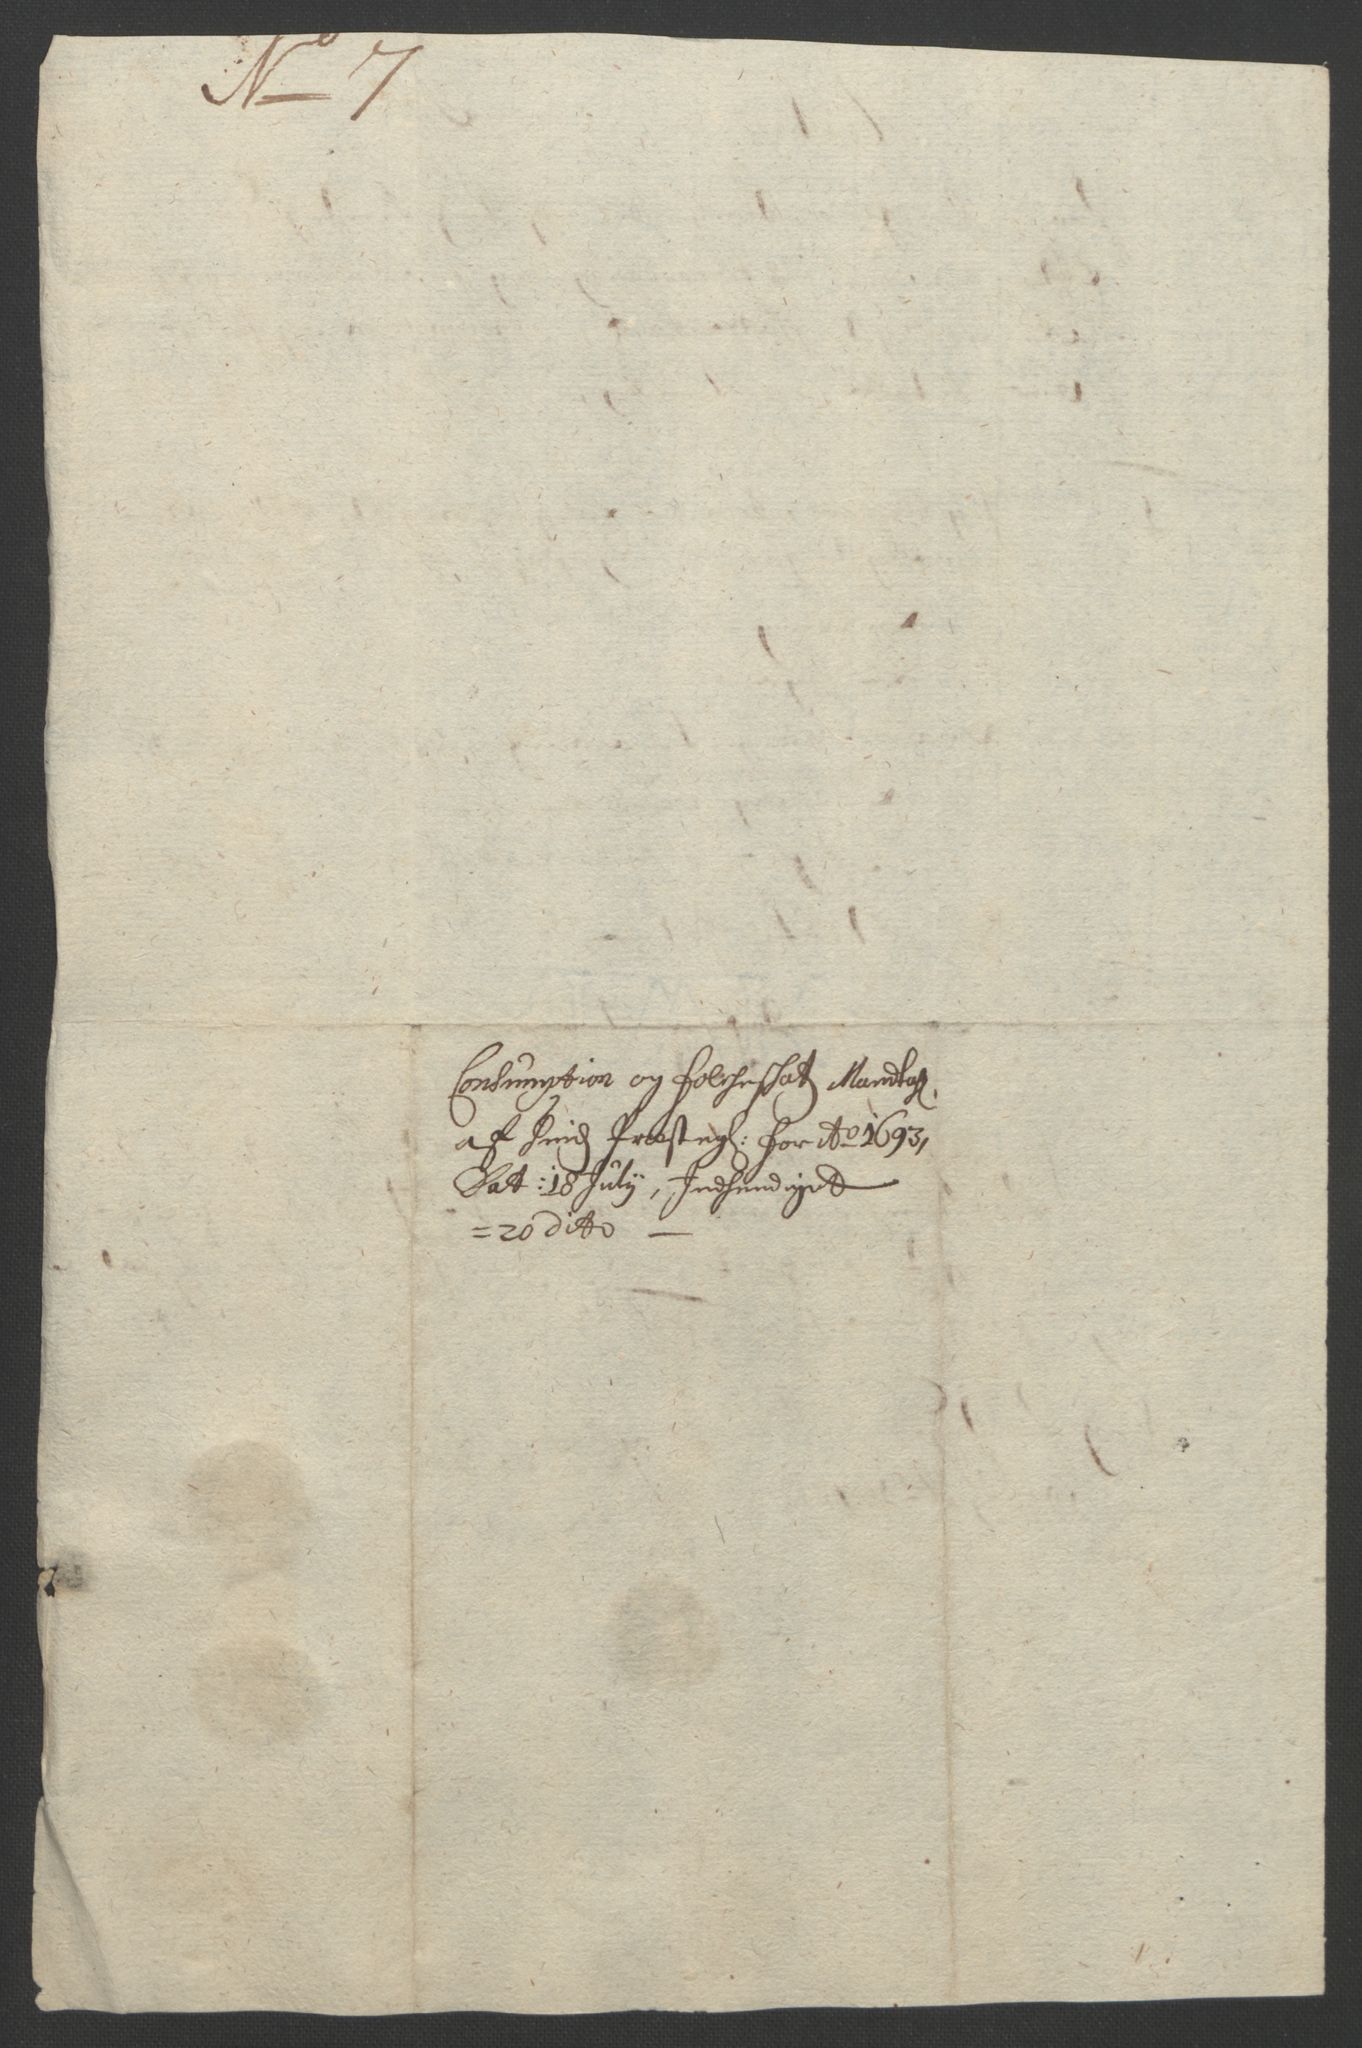 No 7
Consumption og folcheschatz Mandtal,
af Hvid Præstegl: for Ao 1693,
Dat: 18 July, Indhendiget
= 20 dito —